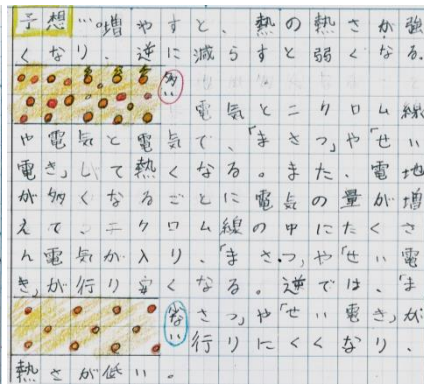 予想…増やすと、熱の熱さが強
くなり、逆に減らすと弱くなる。
多い
電気とニクロム線
や電気と電気で、「まさつ」や「せい
電き」して熱くなる。また、電地
が多くなるごとに電気の量が増
えて、ニクロム線の中にたくさ
ん電気が入り、「まさつ」や「せい電
き」が行り安くなる。逆では、「ま
少ない
さつ」や「せい電き」が
行りにくくなり、
熱さが低い。